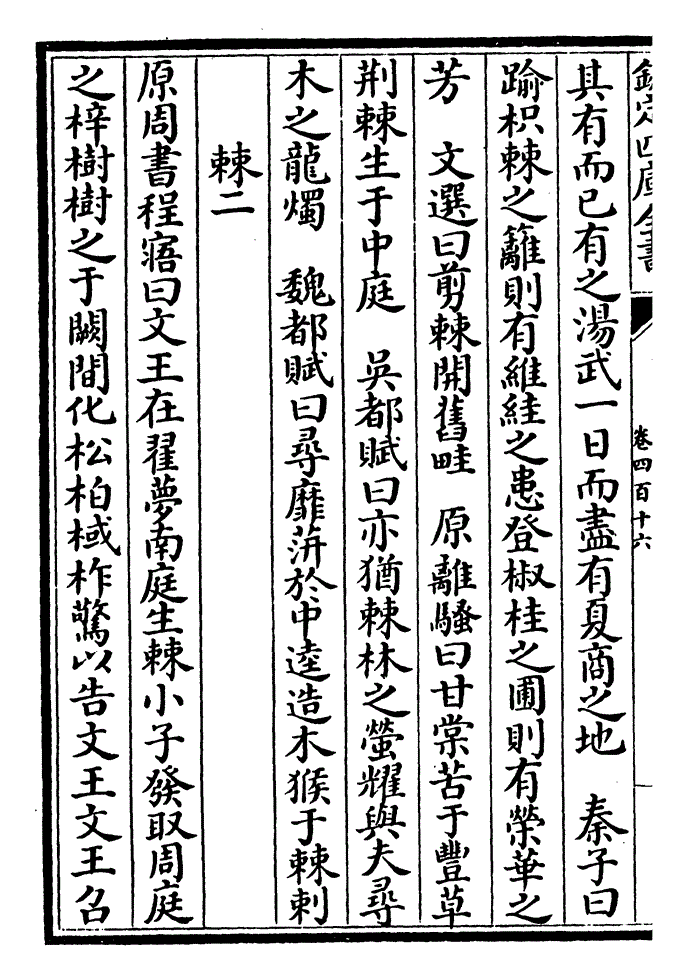 欽定四庫全書
卷四百十六
其有而已有之湯武一日而盡有夏商之地　秦子曰
踰枳棘之籬則有維絓之患登椒桂之圃則有榮華之
芳　文選曰剪棘開舊畦　原離騷曰甘棠苦于豐草
荆棘生于中庭　吳都賦曰亦猶棘林之螢耀與夫尋
木之龍燭　魏都賦曰尋靡蓱於中逵造木猴于棘刺
棘二
原周書程寤曰文王在翟夢南庭生棘小子發取周庭
之梓樹樹之于闕間化松柏棫柞驚以告文王文王召